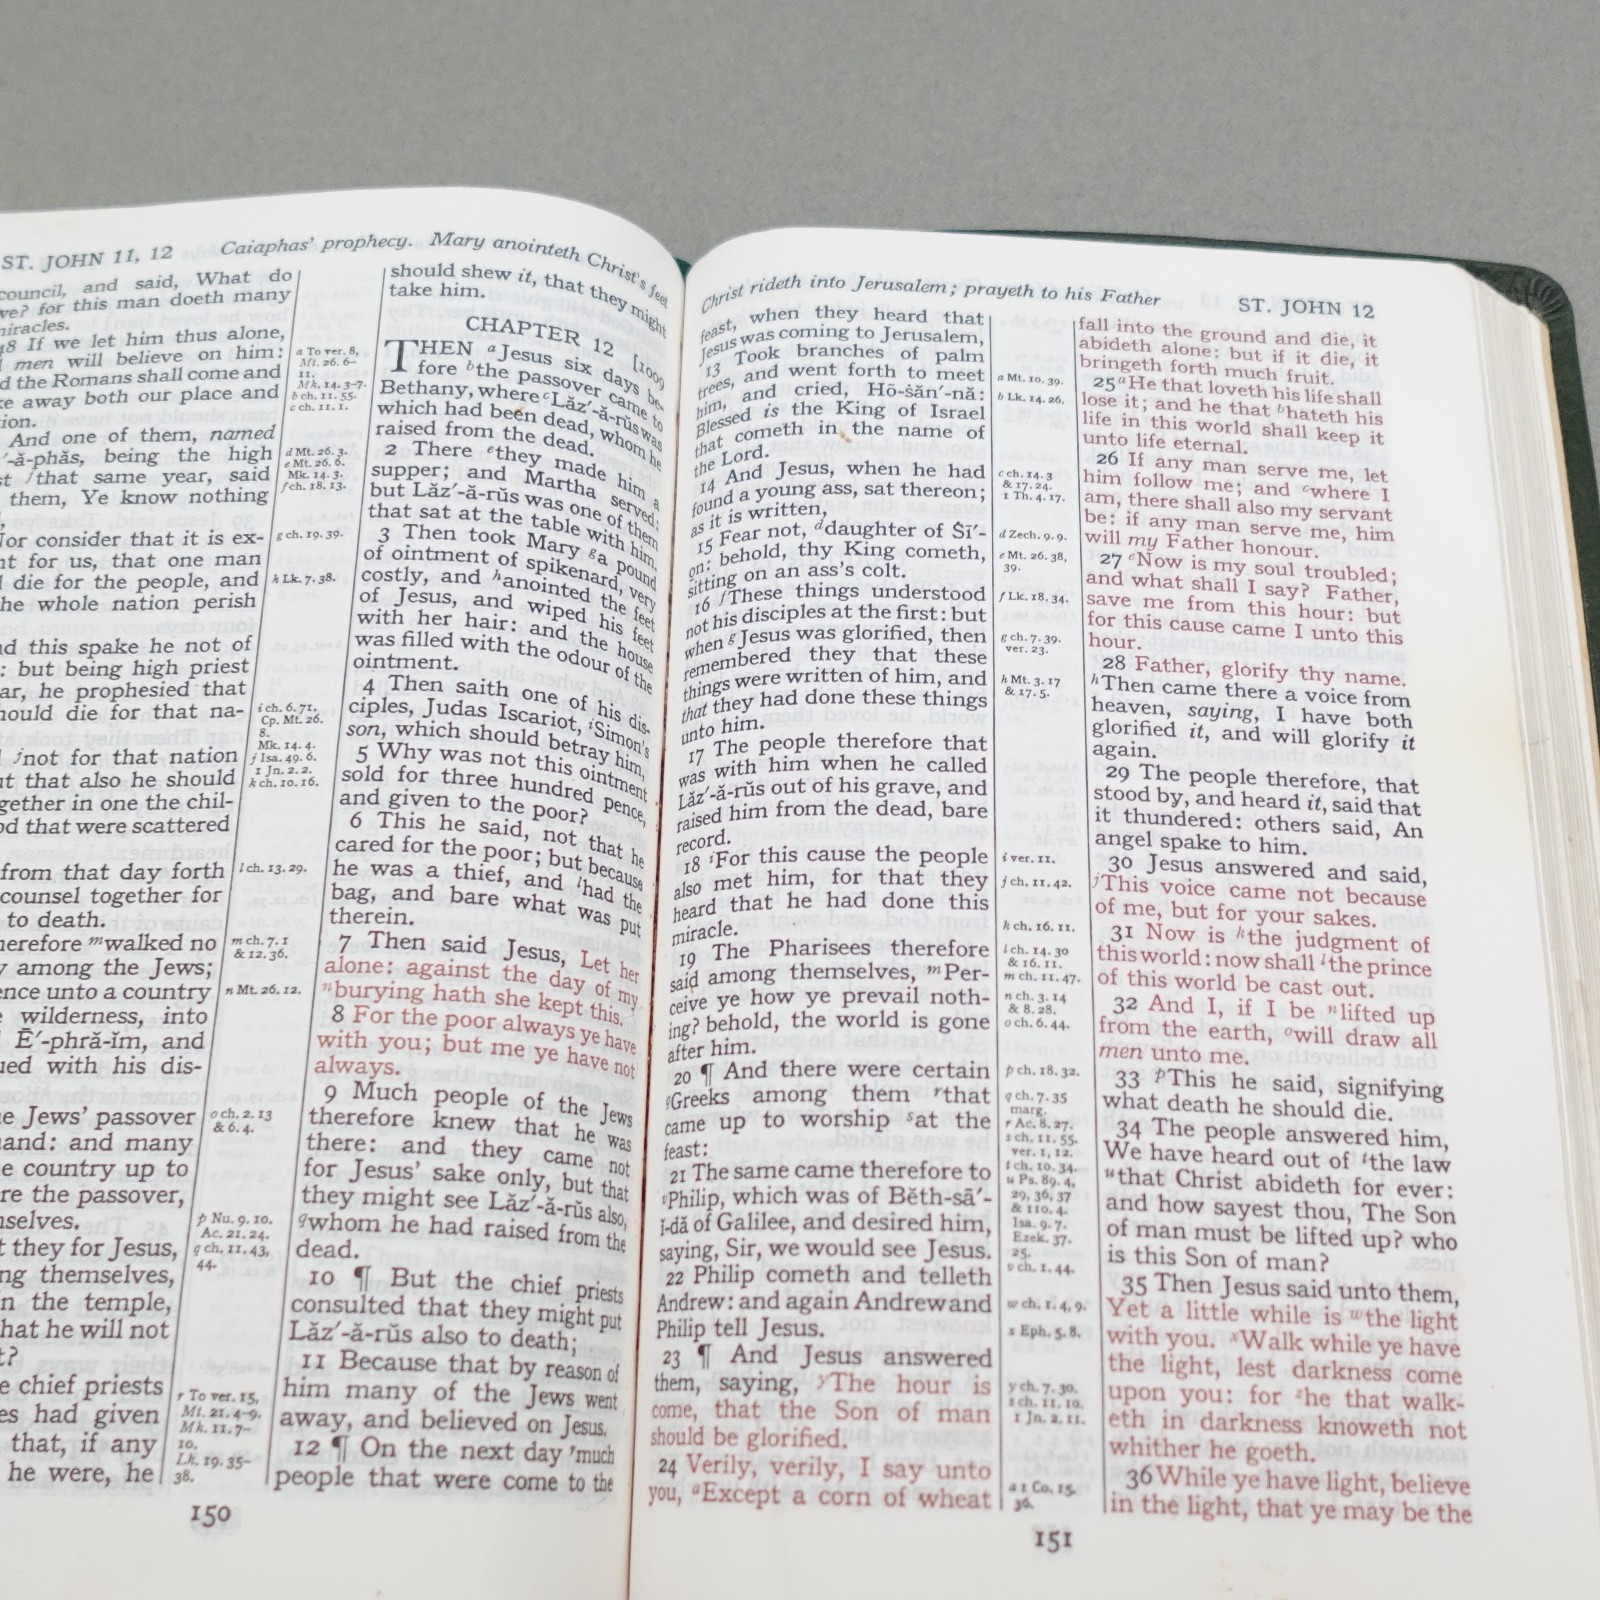 ST. JOHN 11, 12
Caiaphas' prophecy. Mary anointeth Christ's feet
council, and said, What do
for this man doeth many
If we let him thus alone,
men will believe on him:
the Romans shall come and
away both our place and
And one of them, named
-ă-phăs, being the high
ᶠthat same year, said
them, Ye know nothing
consider that it is ex-
for us, that one man
die for the people, and
whole nation perish
this spake he not of
: but being high priest
he prophesied that
should die for that na-
ʲnot for that nation
that also he should
together in one the chil-
that were scattered
from that day forth
counsel together for
to death.
ᵐwalked no
among the Jews;
unto a country
wilderness, into
Ē'-phră-ĭm, and
with his dis-
Jews' passover
and: and many
country up to
the passover,
they for Jesus,
themselves,
in the temple,
that he will not
chief priests
had given
that, if any
he were, he
a To ver. 8,
Mt. 26. 6-
11.
Mk. 14. 3-7.
b ch. 11. 55.
c ch. 11. 1.
d Mt. 26. 3.
e Mt. 26. 6.
Mk. 14. 3.
f ch. 18. 13.
g ch. 19. 39.
h Lk. 7. 38.
i ch. 6. 71.
Cp. Mt. 26.
8.
Mk. 14. 4.
j Isa. 49. 6.
1 Jn. 2. 2.
k ch. 10. 16.
l ch. 13. 29.
m ch. 7. 1
& 12. 36.
n Mt. 26. 12.
o ch. 2. 13
& 6. 4.
p Nu. 9. 10.
Ac. 21. 24.
q ch. 11. 43,
44.
r To ver. 15,
Mt. 21. 4-9.
Mk. 11. 7-
10.
Lk. 19. 35-
38.
should shew it, that they might
take him.
CHAPTER 12 [1009
THEN ᵃJesus six days be-
fore ᵇthe passover came to
Bethany, where ᶜLăz'-ă-rŭs was
which had been dead, whom he
raised from the dead.
2 There ᵉthey made him a
supper; and Martha served:
but Lăz'-ă-rŭs was one of them
that sat at the table with him.
3 Then took Mary ᵍa pound
of ointment of spikenard, very
costly, and ʰanointed the feet
of Jesus, and wiped his feet
with her hair: and the house
was filled with the odour of the
ointment.
4 Then saith one of his dis-
ciples, Judas Iscariot, ⁱSimon's
son, which should betray him,
5 Why was not this ointment
sold for three hundred pence,
and given to the poor?
6 This he said, not that he
cared for the poor; but because
he was a thief, and ˡhad the
bag, and bare what was put
therein.
7 Then said Jesus, Let her
alone: against the day of my
ⁿburying hath she kept this.
8 For the poor always ye have
with you; but me ye have not
always.
9 Much people of the Jews
therefore knew that he was
there: and they came not
for Jesus' sake only, but that
they might see Lăz'-ă-rŭs also,
qwhom he had raised from the
dead.
10 ¶ But the chief priests
consulted that they might put
Lăz'-ă-rŭs also to death;
11 Because that by reason of
him many of the Jews went
away, and believed on Jesus.
12 ¶ On the next day ʳmuch
people that were come to the
150
Christ rideth into Jerusalem; prayeth to his Father
ST. JOHN 12
feast, when they heard that
Jesus was coming to Jerusalem,
13 Took branches of palm
trees, and went forth to meet
him, and cried, Hō-ṡăn'-nă:
Blessed is the King of Israel
that cometh in the name of
the Lord.
14 And Jesus, when he had
found a young ass, sat thereon;
as it is written,
15 Fear not, ᵈdaughter of Ṡī'-
on: behold, thy King cometh,
sitting on an ass's colt.
16 ᶠThese things understood
not his disciples at the first: but
when ᵍJesus was glorified, then
remembered they that these
things were written of him, and
that they had done these things
unto him.
17 The people therefore that
was with him when he called
Lăz'-ă-rŭs out of his grave, and
raised him from the dead, bare
record.
18 ⁱFor this cause the people
also met him, for that they
heard that he had done this
miracle.
19 The Pharisees therefore
said among themselves, ᵐPer-
ceive ye how ye prevail noth-
ing? behold, the world is gone
after him.
20 ¶ And there were certain
qGreeks among them ʳthat
came up to worship ˢat the
feast:
21 The same came therefore to
ᵛPhilip, which was of Bĕth-sā'-
ĭ-dă of Galilee, and desired him,
saying, Sir, we would see Jesus.
22 Philip cometh and telleth
Andrew: and again Andrew and
Philip tell Jesus.
23 ¶ And Jesus answered
them, saying, ʸThe hour is
come, that the Son of man
should be glorified.
24 Verily, verily, I say unto
you, ᵃExcept a corn of wheat
a Mt. 10. 39.
b Lk. 14. 26.
c ch. 14. 3
& 17. 24.
1 Th. 4. 17.
d Zech. 9. 9.
e Mt. 26. 38,
39.
f Lk. 18. 34.
g ch. 7. 39.
ver. 23.
h Mt. 3. 17
& 17. 5.
i ver. 11.
j ch. 11. 42.
k ch. 16. 11.
l ch. 14. 30
& 16. 11.
m ch. 11. 47.
n ch. 3. 14
& 8. 28.
o ch. 6. 44.
p ch. 18. 32.
q ch. 7. 35
marg.
r Ac. 8. 27.
s ch. 11. 55.
ver. 1, 12.
t ch. 10. 34.
u Ps. 89. 4,
29, 36, 37
& 110. 4.
Isa. 9. 7.
Ezek. 37.
25.
v ch. 1. 44.
w ch. 1. 4, 9.
x Eph. 5. 8.
y ch. 7. 30.
z ch. 11. 10.
1 Jn. 2. 11.
a 1 Co. 15.
36.
fall into the ground and die, it
abideth alone: but if it die, it
bringeth forth much fruit.
25 ᵃHe that loveth his life shall
lose it; and he that ᵇhateth his
life in this world shall keep it
unto life eternal.
26 If any man serve me, let
him follow me; and ᶜwhere I
am, there shall also my servant
be: if any man serve me, him
will my Father honour.
27 ᵉNow is my soul troubled;
and what shall I say? Father,
save me from this hour: but
for this cause came I unto this
hour.
28 Father, glorify thy name.
ʰThen came there a voice from
heaven, saying, I have both
glorified it, and will glorify it
again.
29 The people therefore, that
stood by, and heard it, said that
it thundered: others said, An
angel spake to him.
30 Jesus answered and said,
ʲThis voice came not because
of me, but for your sakes.
31 Now is ᵏthe judgment of
this world: now shall ˡthe prince
of this world be cast out.
32 And I, if I be ⁿlifted up
from the earth, ᵒwill draw all
men unto me.
33 ᵖThis he said, signifying
what death he should die.
34 The people answered him,
We have heard out of ᵗthe law
ᵘthat Christ abideth for ever:
and how sayest thou, The Son
of man must be lifted up? who
is this Son of man?
35 Then Jesus said unto them,
Yet a little while is ʷthe light
with you. ˣWalk while ye have
the light, lest darkness come
upon you: for ᶻhe that walk-
eth in darkness knoweth not
whither he goeth.
36 While ye have light, believe
in the light, that ye may be the
151